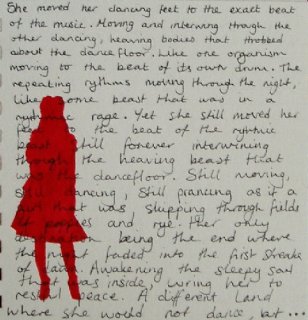 She moved her dancing feet to the exact beat
of the music. Moving and interwing through the
other dancing, heaving bodies that throbbed
about the dancefloor. Like one organism
moving to the beat of its own drum. The
repeating rythms moving through the night,
like some beast that was in a
rage. Yet she still moved her
to the beat of the
beast still forever interwining
through the heaving beast that
was the dancefloor. Still moving,
still dancing, still prancing as if a
that was skipping through fields
of poppies and rye. Her only
being the end where
the night faded into the first streaks
of dawn. Awakening the sleepy soul
that was inside, luring her to
restful peace. A different land
where she would not dance, but ...